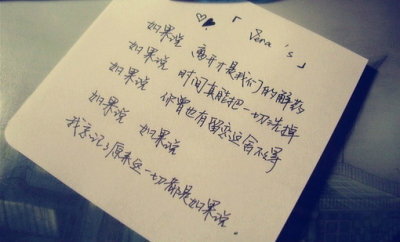 「Vena's」
如果说 离开才是我们的解药
如果说 时间真能把一切洗掉
如果说 你曾也有留恋过会不舍
如果说 如果说
我忘记了原来这一切都是如果说。